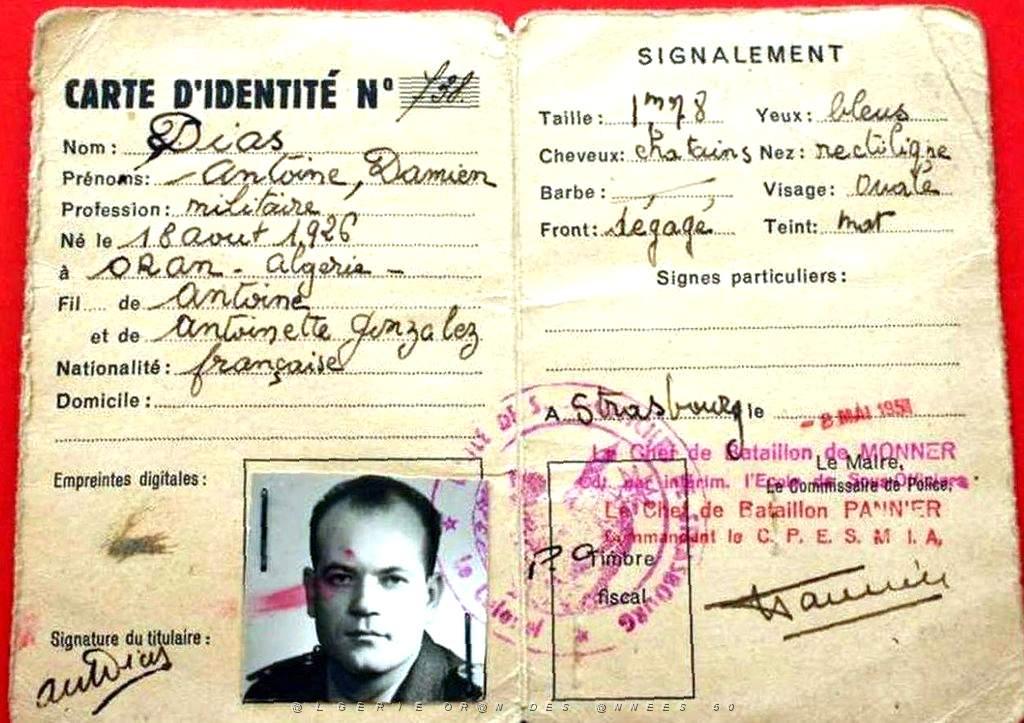 CARTE D'IDENTITÉ Nº 738.
Nom : Dias
Prénoms: Antoine, Damien
Profession: militaire
Né le 18 aout 1926
à ORAN - Algerie -
Fil.... de Antoine
et de Antoinette Gonzalez
Nationalité: française
Domicile :
Empreintes digitales :
Signature du titulaire :
antDias
SIGNALEMENT
Taille : 1m78 Yeux: bleus
Cheveux: chatains Nez: rectiligne
Barbe : Visage: Ovale
Front: dégagé Teint: mat
Signes particuliers :
A Strasbourg le - 8 MAI 195
Le Chef de Bataillon de MONNER
Le Maire,
Cdt. par intérim. l'Ecole de Sous-Officiers
Le Commissaire de Police,
Le Chef de Bataillon PANNIER
Commandant le C. P. E. S. M. I. A,
P. O Timbre
fiscal
Pannier
STRASBOURG
le Colonel
@LGERIE OR@N DES @NNEES 50